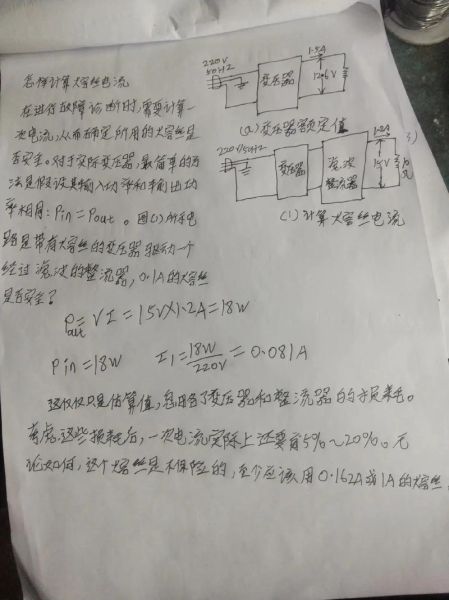 怎样计算大容丝电流
在进行故障诊断时,需要计算一
次电流,从而确定所用的大容丝是
否安全。对于实际变压器,最简单的方
法是假设其输入功率和输出功
率相同:Pin=Pout。图(1)所示电
路是带有大容丝的变压器驱动一个
经过滤波的整流器,0.1A的大容丝
是否安全?
Pout=VI=15V×1.2A=18W
Pin=18W I1=18W/220V=0.081A
这仅仅只是估算值,忽略了变压器和整流器的于员耗。
考虑这些损耗后,一次电流实际上还要高5%~20%。无
论如何,这个大容丝是不保险的,至少应该用0.162A或1A的大容丝
220V
50HZ
变压器
1.5A
12.6V
(a)变压器额定值
220V/50HZ
变压器
滤波
整流器
1.2A
15V
(1)计算大容丝电流